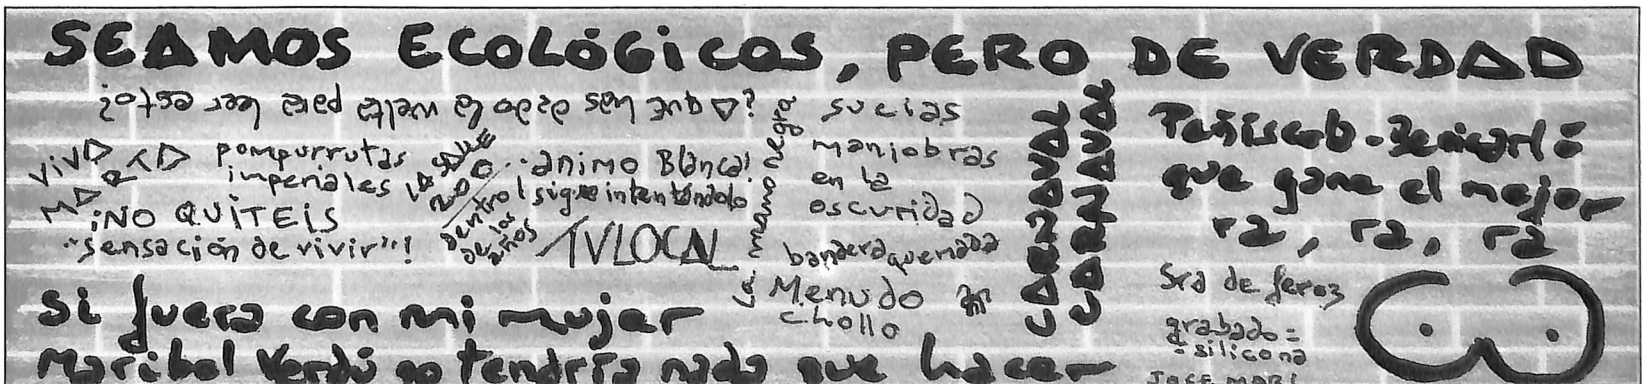 SEAMOS ECOLÓGICOS, PERO DE VERDAD
¿A que has dado la vuelta para leer esto?
VIVA
MARTA
pompurrutas
imperiales
¡NO QUITEIS
"sensación de vivir"!
2000
dentro
de los
años
..ánimo Blanca!
¡sigue intentándolo
TV LOCAL
La mano negra
sucias
maniobras
en la
oscuridad
bandera quemada
Menudo
chollo
CARNAVAL
CARNAVAL
Peñíscola-Benicarló
que gane el mejor
ra, ra, ra
Sra de feroz
grabado =
= silicona
JOSE MARI
Si fuera con mi mujer
Maribel Verdú no tendría nada que hacer